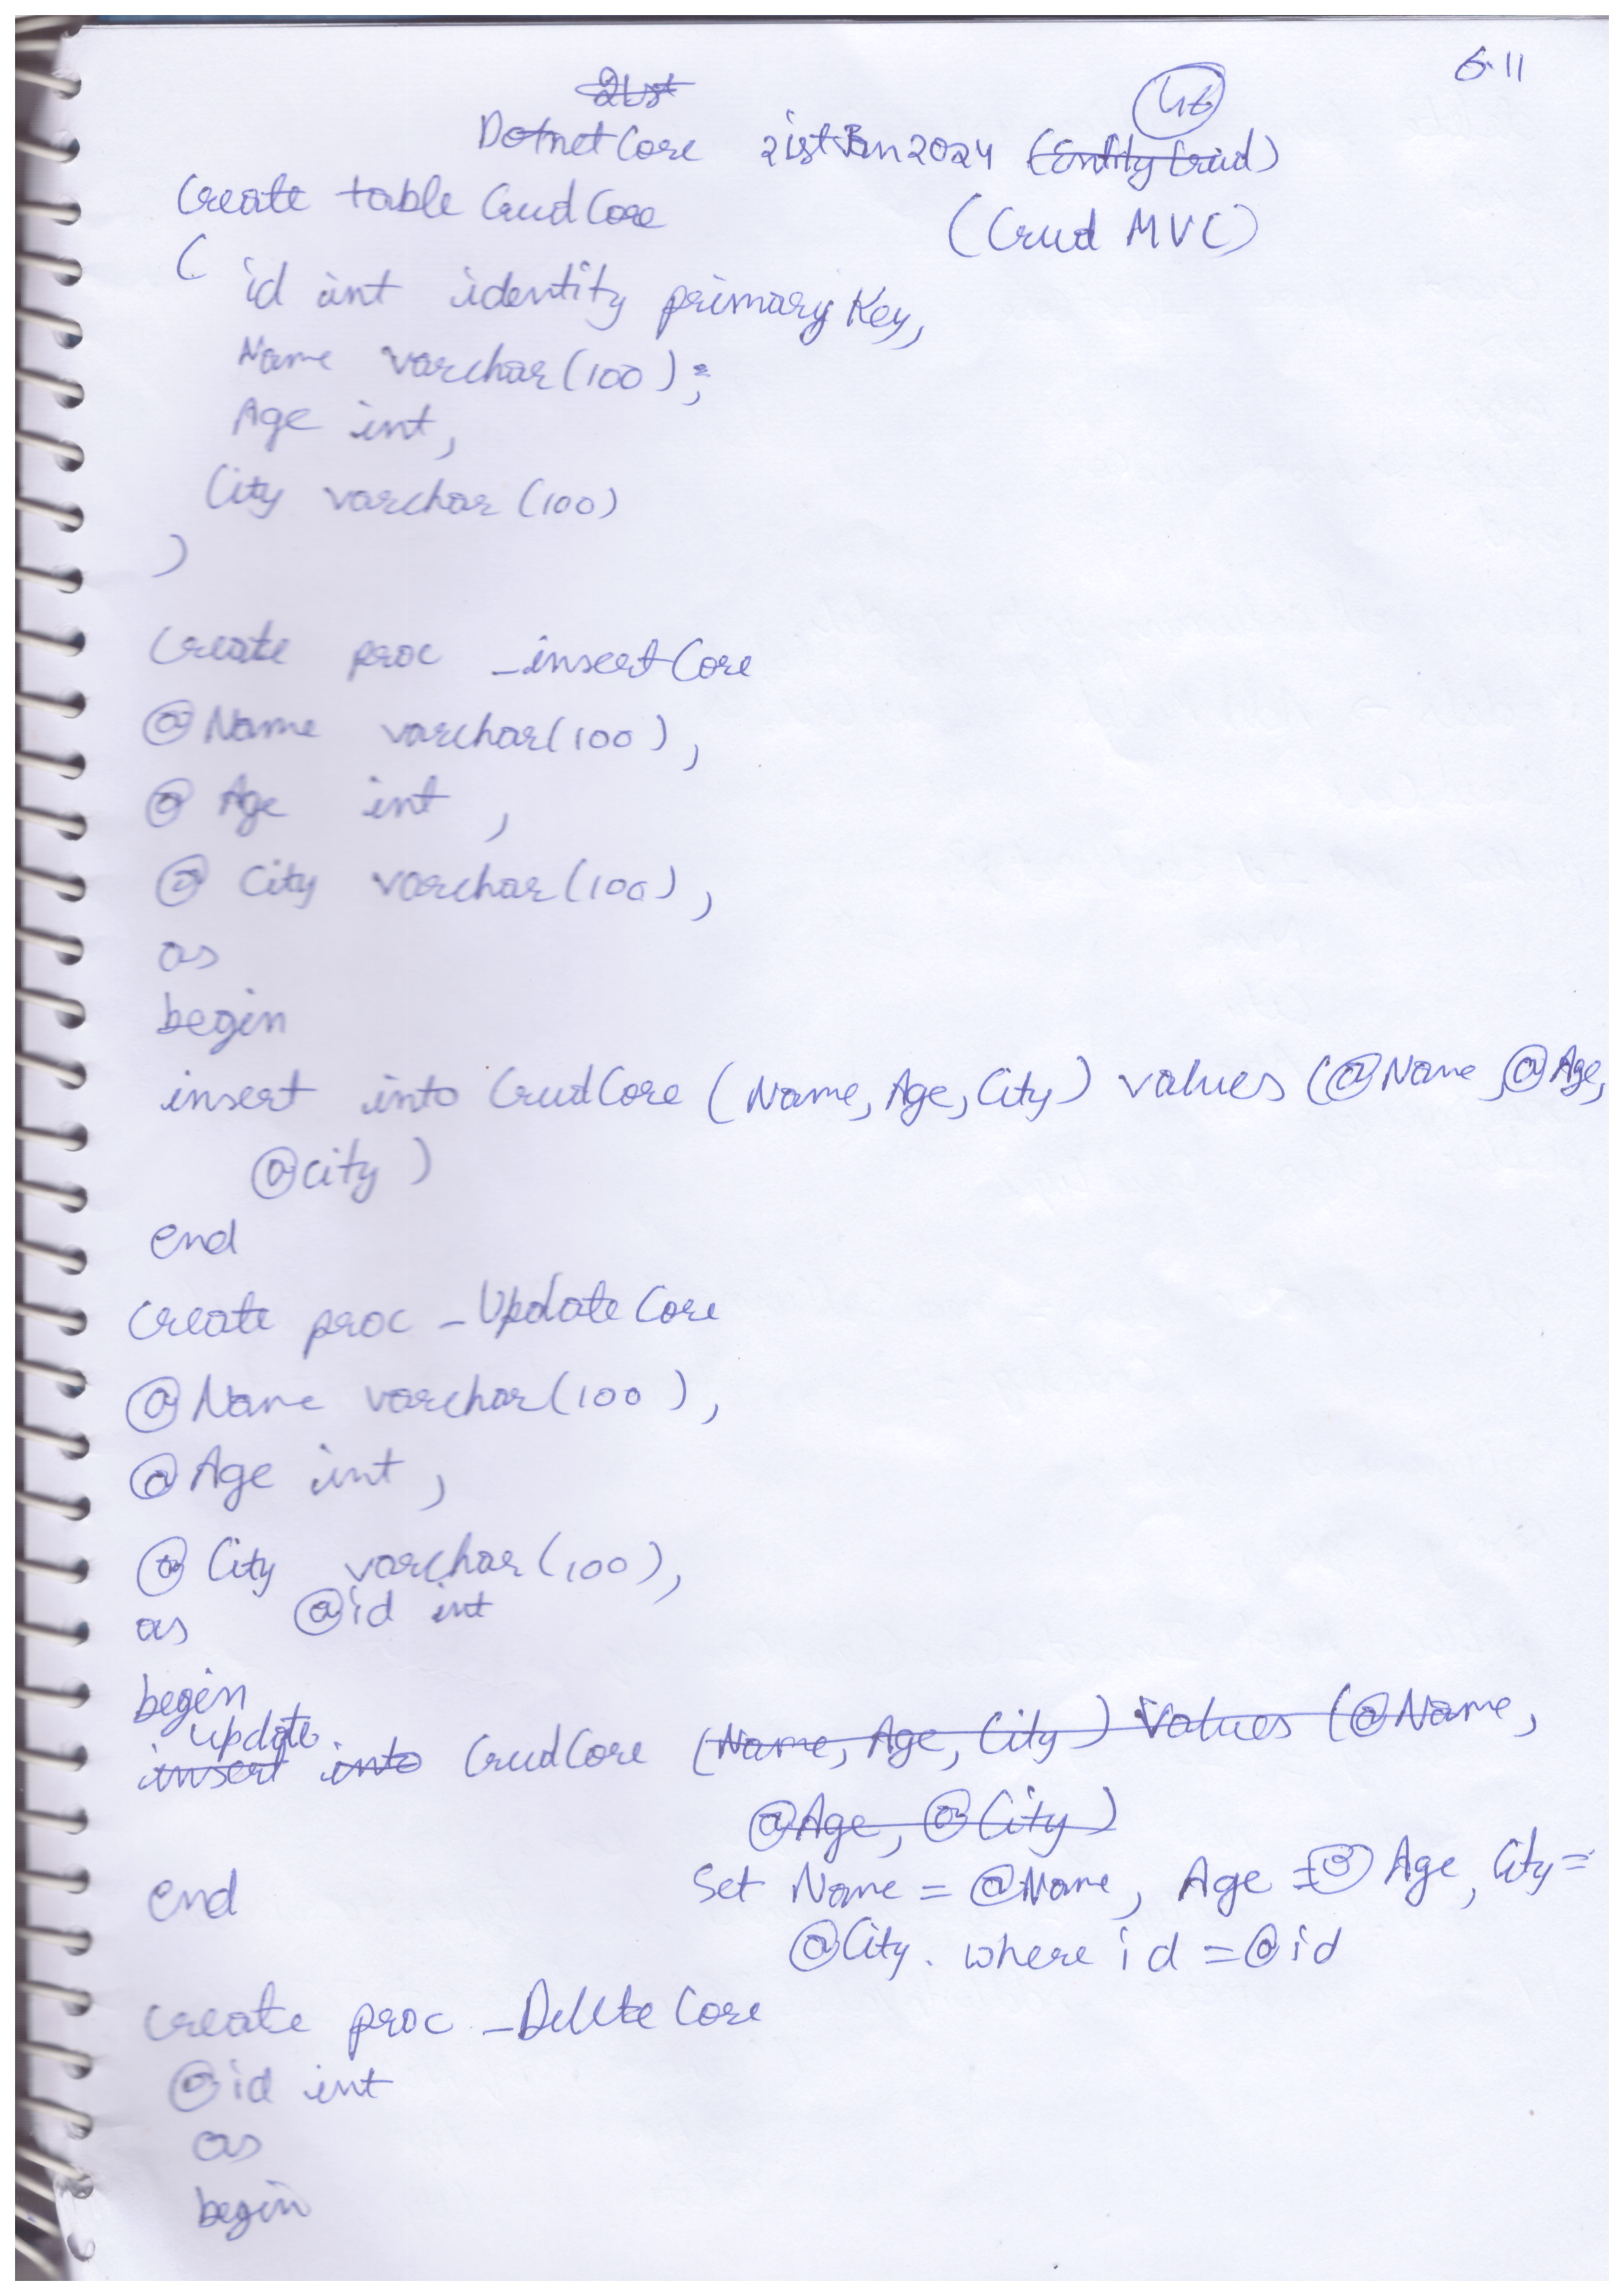 6.11
21st
Dotnet Core 21st Jan 2024 (Entity Crud)
Create table CrudCore (Crud MVC)
(
id int identity primary Key,
Name varchar(100);
Age int,
City varchar (100)
)
Create proc _insertCore
@Name varchar(100),
@ Age int ,
@ City varchar(100),
as
begin
insert into CrudCore (Name, Age, City) values (@Name, @Age,
@city )
end
Create proc _UpdateCore
@Name varchar(100),
@Age int ,
@ City varchar(100),
as @id int
begin
update
insert into CrudCore (Name, Age, City) values (@Name,
@Age, @City)
end Set Name = @Name, Age = @ Age, City =
@City. where id = @id
Create proc _DeleteCore
@id int
as
begin